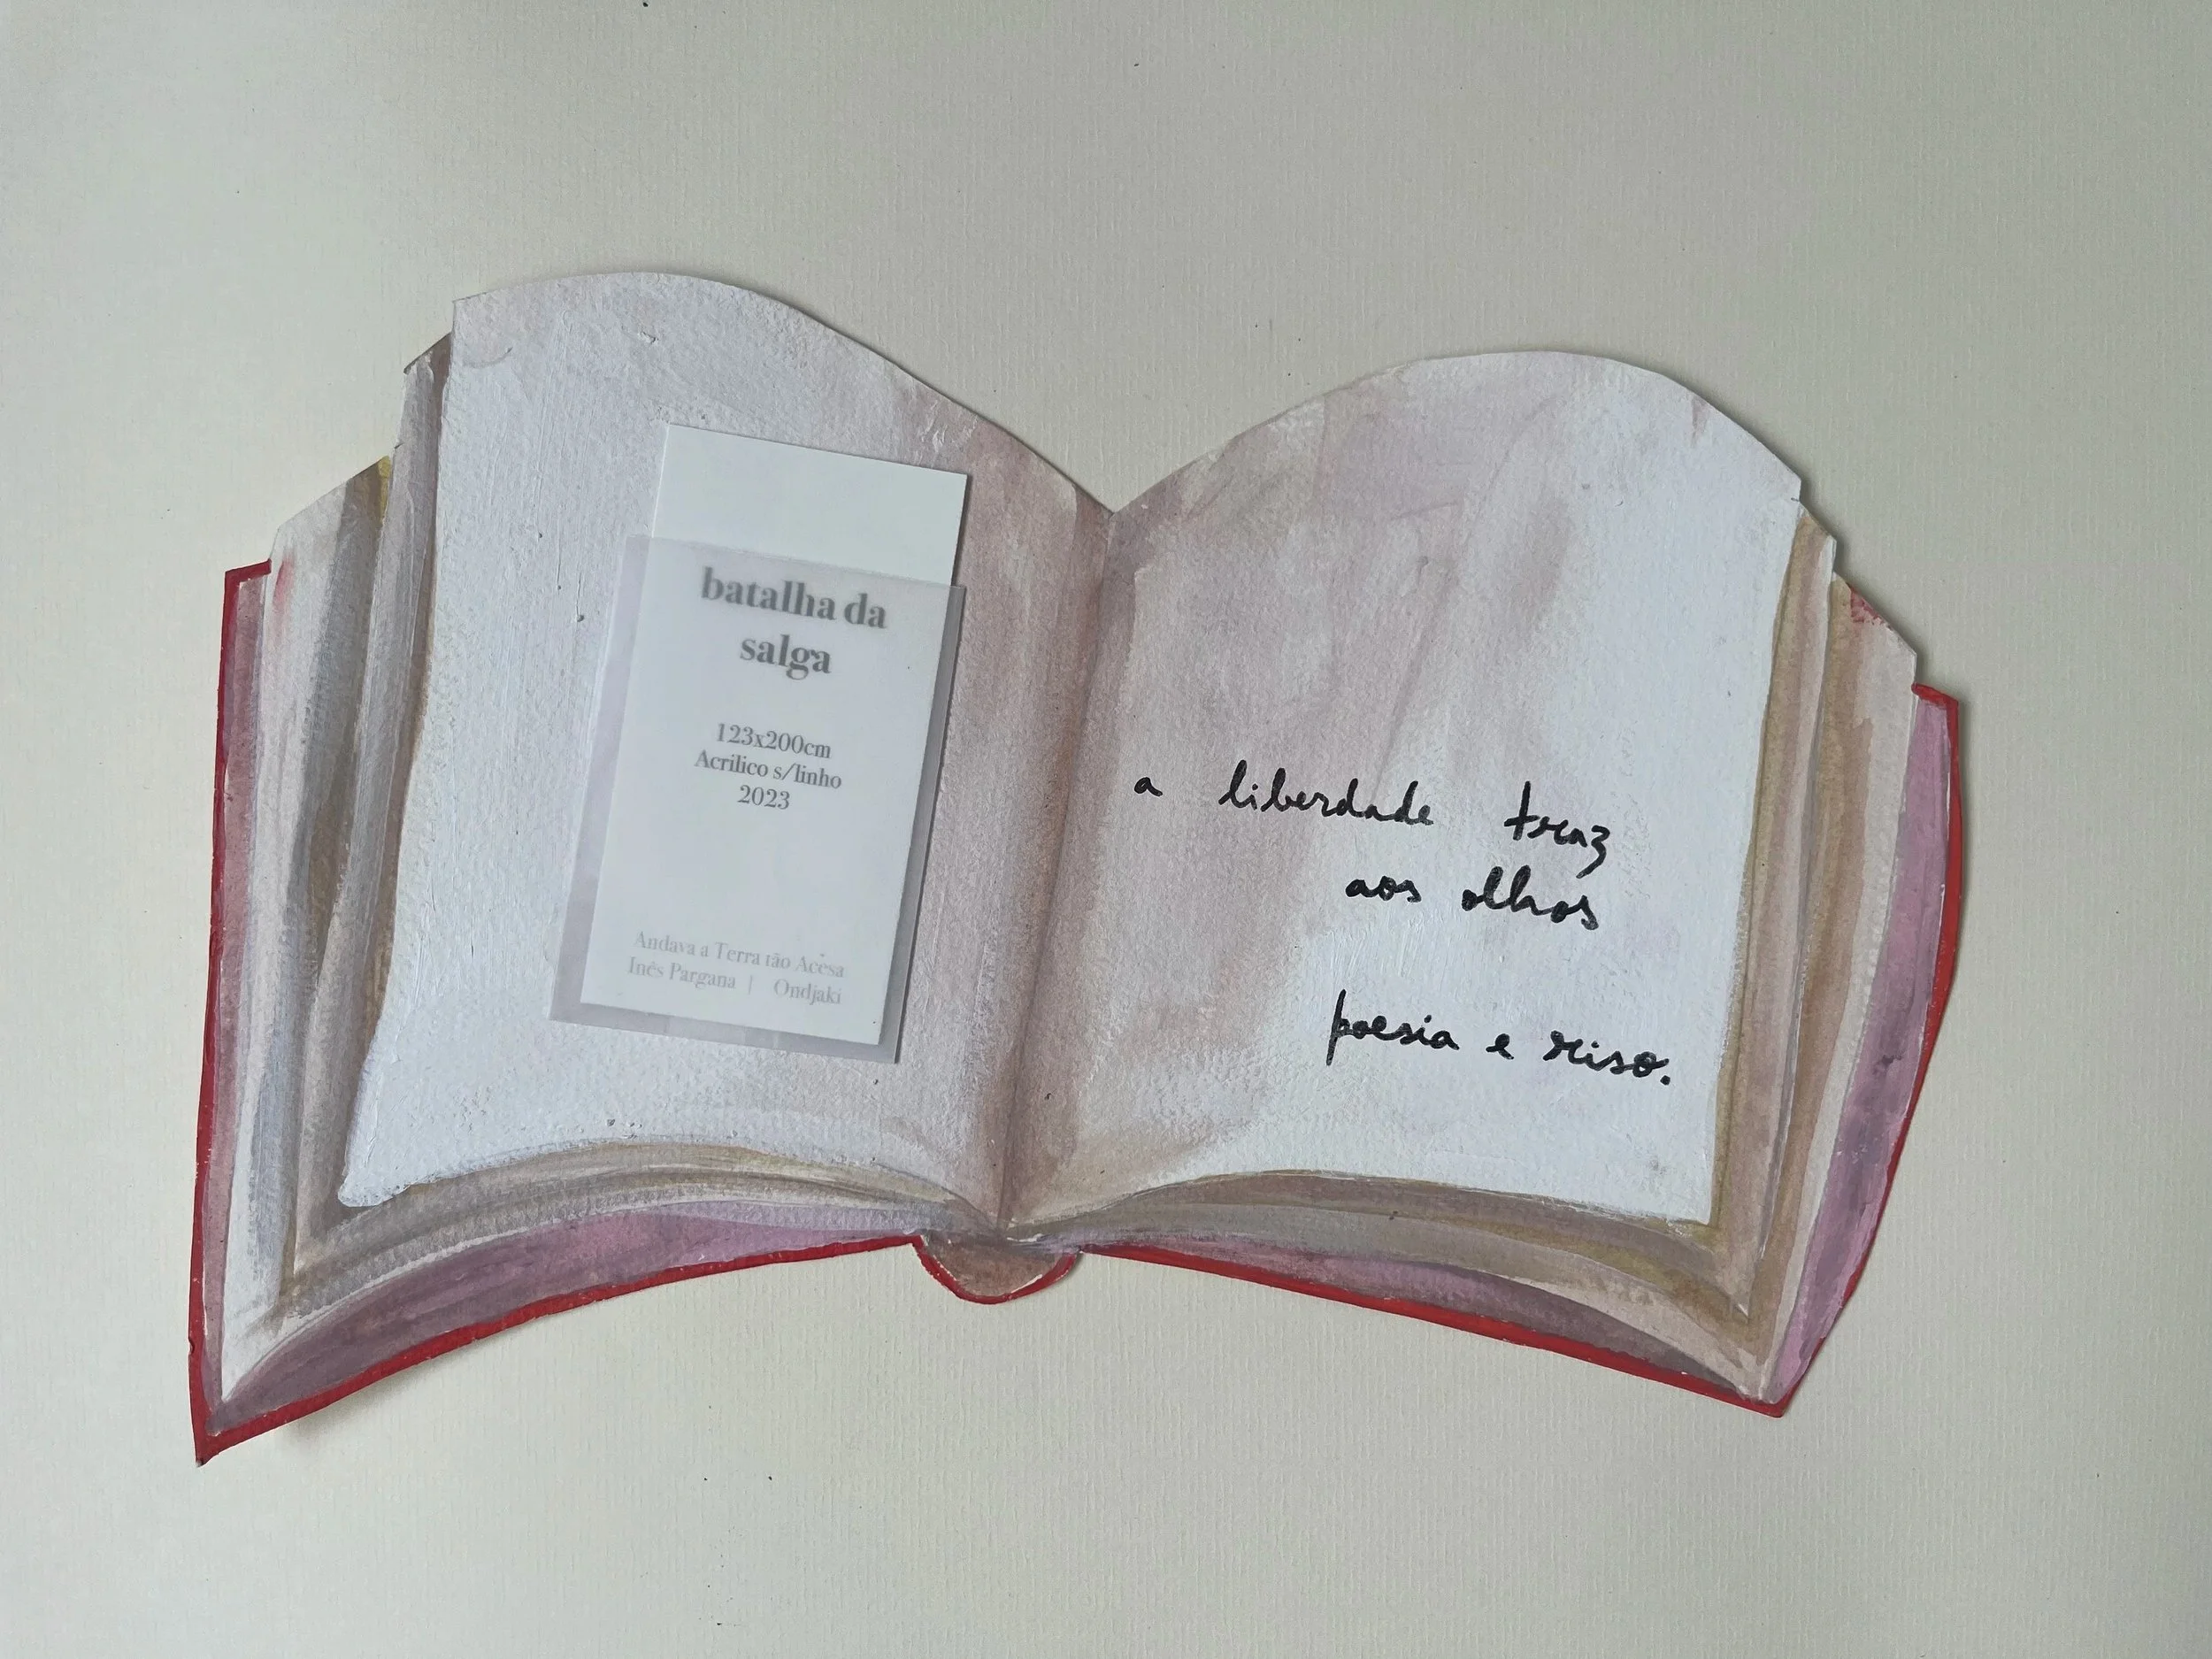 batalha da
salga
123x200cm
Acrilico s/linho
2023
Andava a Terra tão Acesa
Inês Pargana | Ondjaki
a liberdade traz
aos olhos
poesia e riso.